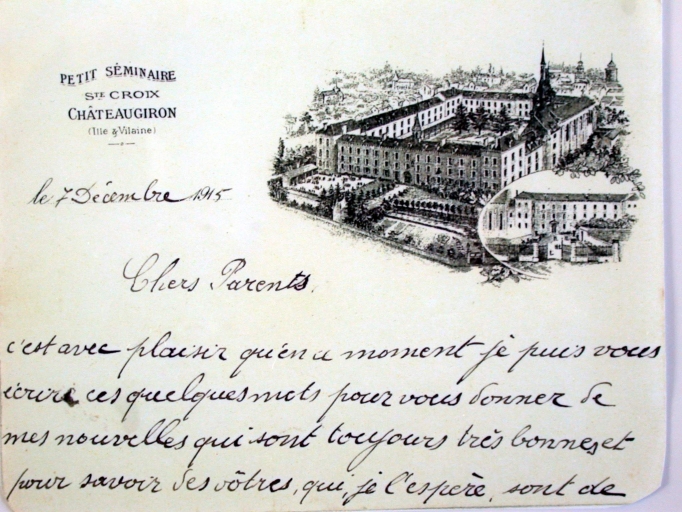 PETIT SÉMINAIRE
STE CROIX
CHÂTEAUGIRON
(Ille & Vilaine)
le 7 Décembre 1915
Chers Parents.
c'est avec plaisir qu'en ce moment je puis vous
écrire ces quelques mots pour vous donner de
mes nouvelles qui sont toujours très bonnes, et
pour savoir des vôtres, qui, je l'espère, sont de